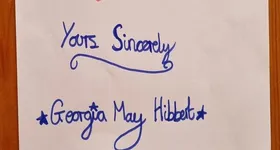 Yours Sincerely
★Georgia May Hibbert★